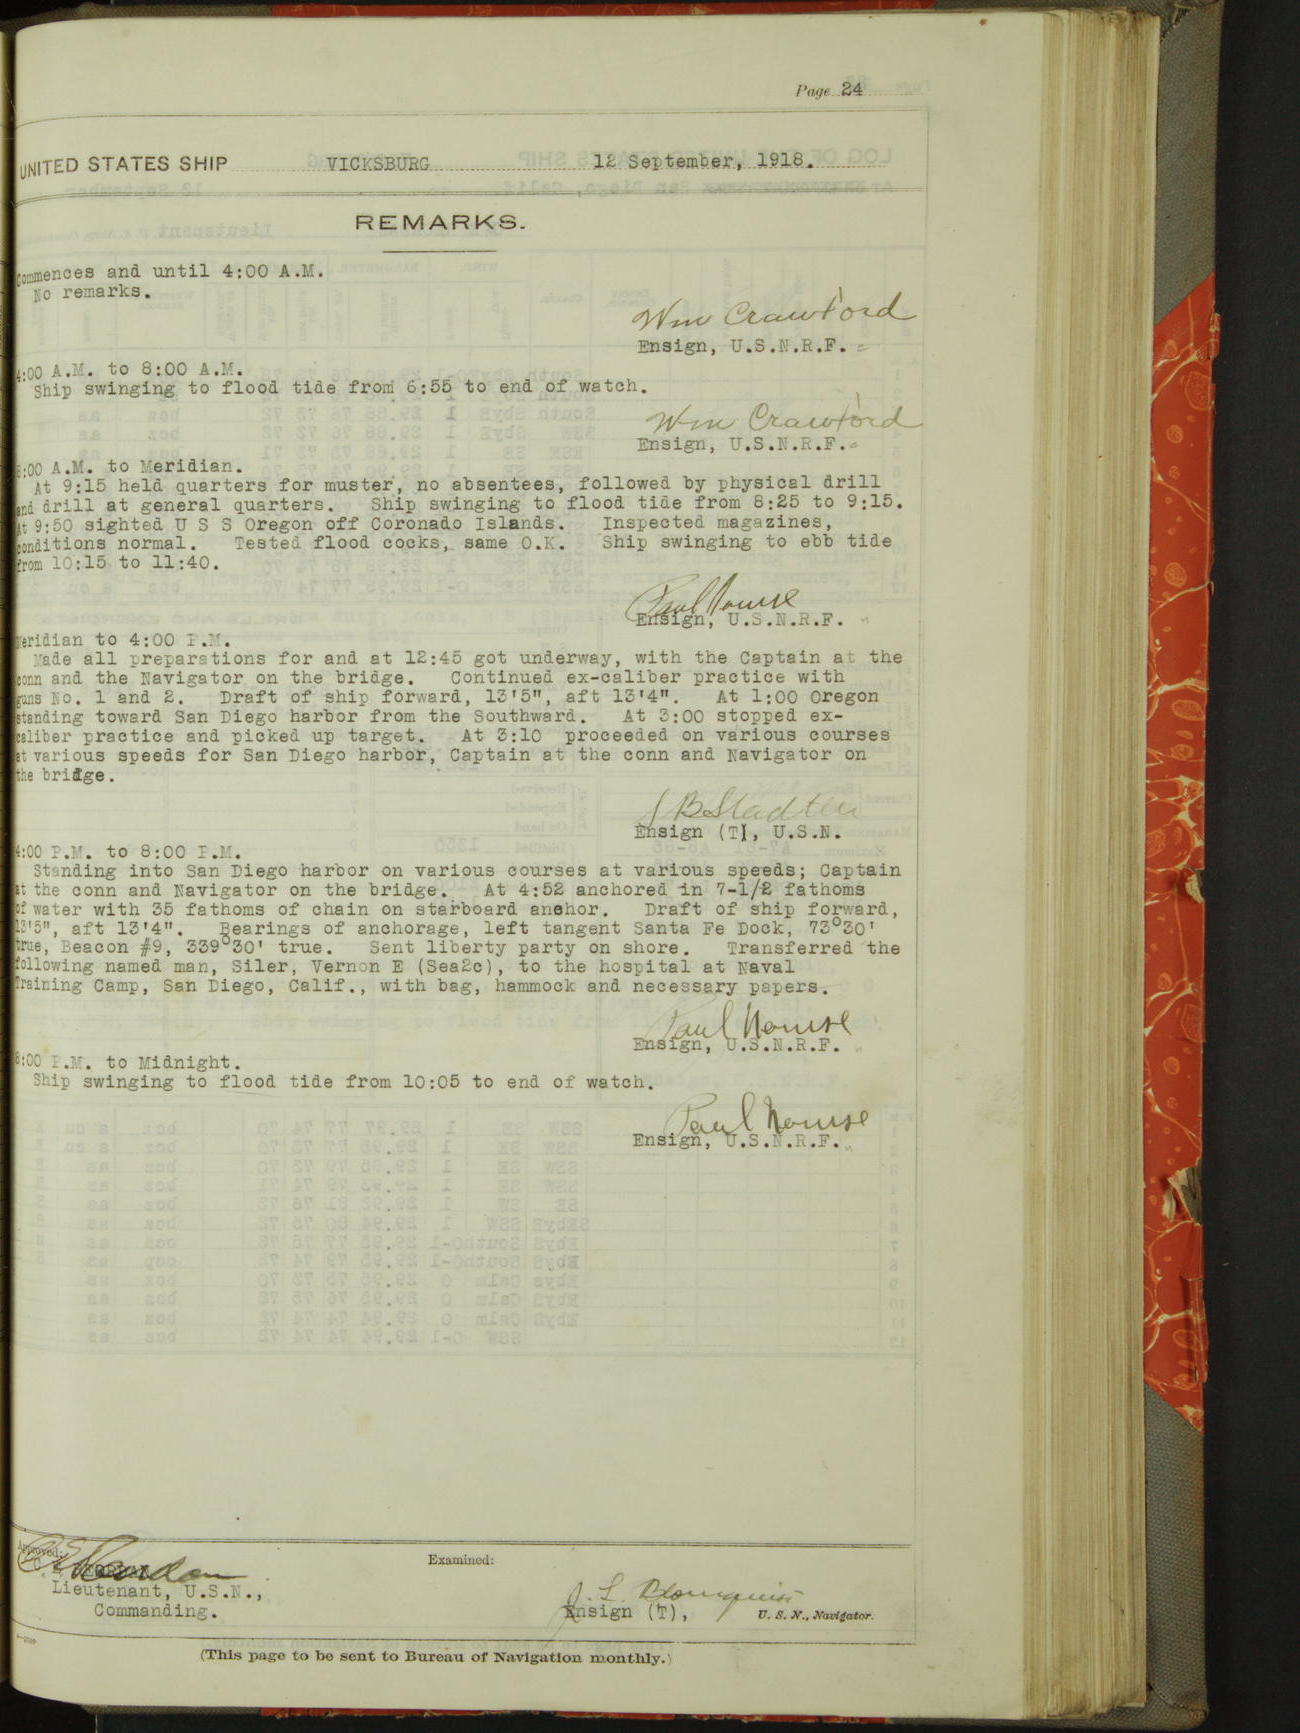 Page 24
UNITED STATES SHIP VICKSBURG 12 September, 1918.
REMARKS.
Commences and until 4:00 A.M.
No remarks.
Wm Crawford
Ensign, U.S.N.R.F.
4:00 A.M. to 8:00 A.M.
Ship swinging to flood tide from 6:55 to end of watch.
Wm Crawford
Ensign, U.S.N.R.F.
8:00 A.M. to Meridian.
At 9:15 held quarters for muster, no absentees, followed by physical drill
and drill at general quarters. Ship swinging to flood tide from 8:25 to 9:15.
At 9:50 sighted U S S Oregon off Coronado Islands. Inspected magazines,
conditions normal. Tested flood cocks, same O.K. Ship swinging to ebb tide
from 10:15 to 11:40.
Paul Nourse
Ensign, U.S.N.R.F.
Meridian to 4:00 P.M.
Made all preparations for and at 12:45 got underway, with the Captain at the
conn and the Navigator on the bridge. Continued ex-caliber practice with
guns No. 1 and 2. Draft of ship forward, 13'5", aft 13'4". At 1:00 Oregon
standing toward San Diego harbor from the Southward. At 3:00 stopped ex-
caliber practice and picked up target. At 3:10 proceeded on various courses
at various speeds for San Diego harbor, Captain at the conn and Navigator on
the bridge.
Ensign (T), U.S.N.
4:00 P.M. to 8:00 P.M.
Standing into San Diego harbor on various courses at various speeds; Captain
at the conn and Navigator on the bridge. At 4:52 anchored in 7-1/2 fathoms
of water with 35 fathoms of chain on starboard anchor. Draft of ship forward,
13'5", aft 13'4". Bearings of anchorage, left tangent Santa Fe Dock, 73°30'
true, Beacon #9, 339°30' true. Sent liberty party on shore. Transferred the
following named man, Siler, Vernon E (Sea2c), to the hospital at Naval
Training Camp, San Diego, Calif., with bag, hammock and necessary papers.
Paul Nourse
Ensign, U.S.N.R.F.
8:00 P.M. to Midnight.
Ship swinging to flood tide from 10:05 to end of watch.
Paul Nourse
Ensign, U.S.N.R.F.
Approved:
Lieutenant, U.S.N.,
Commanding.
Examined:
Ensign (T), U. S. N., Navigator.
(This page to be sent to Bureau of Navigation monthly.)